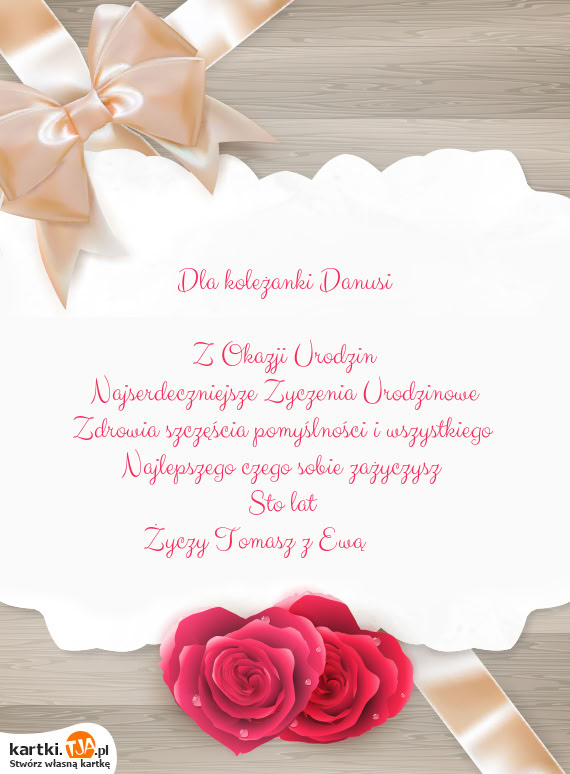 Dla koleżanki Danusi
Z Okazji Urodzin
Najserdeczniejsze Zyczenia Urodzinowe
Zdrowia szczęścia pomyślności i wszystkiego
Najlepszego czego sobie zażyczysz
Sto lat
Życzy Tomasz z Ewą
kartki.TJA.pl
Stwórz własną kartkę